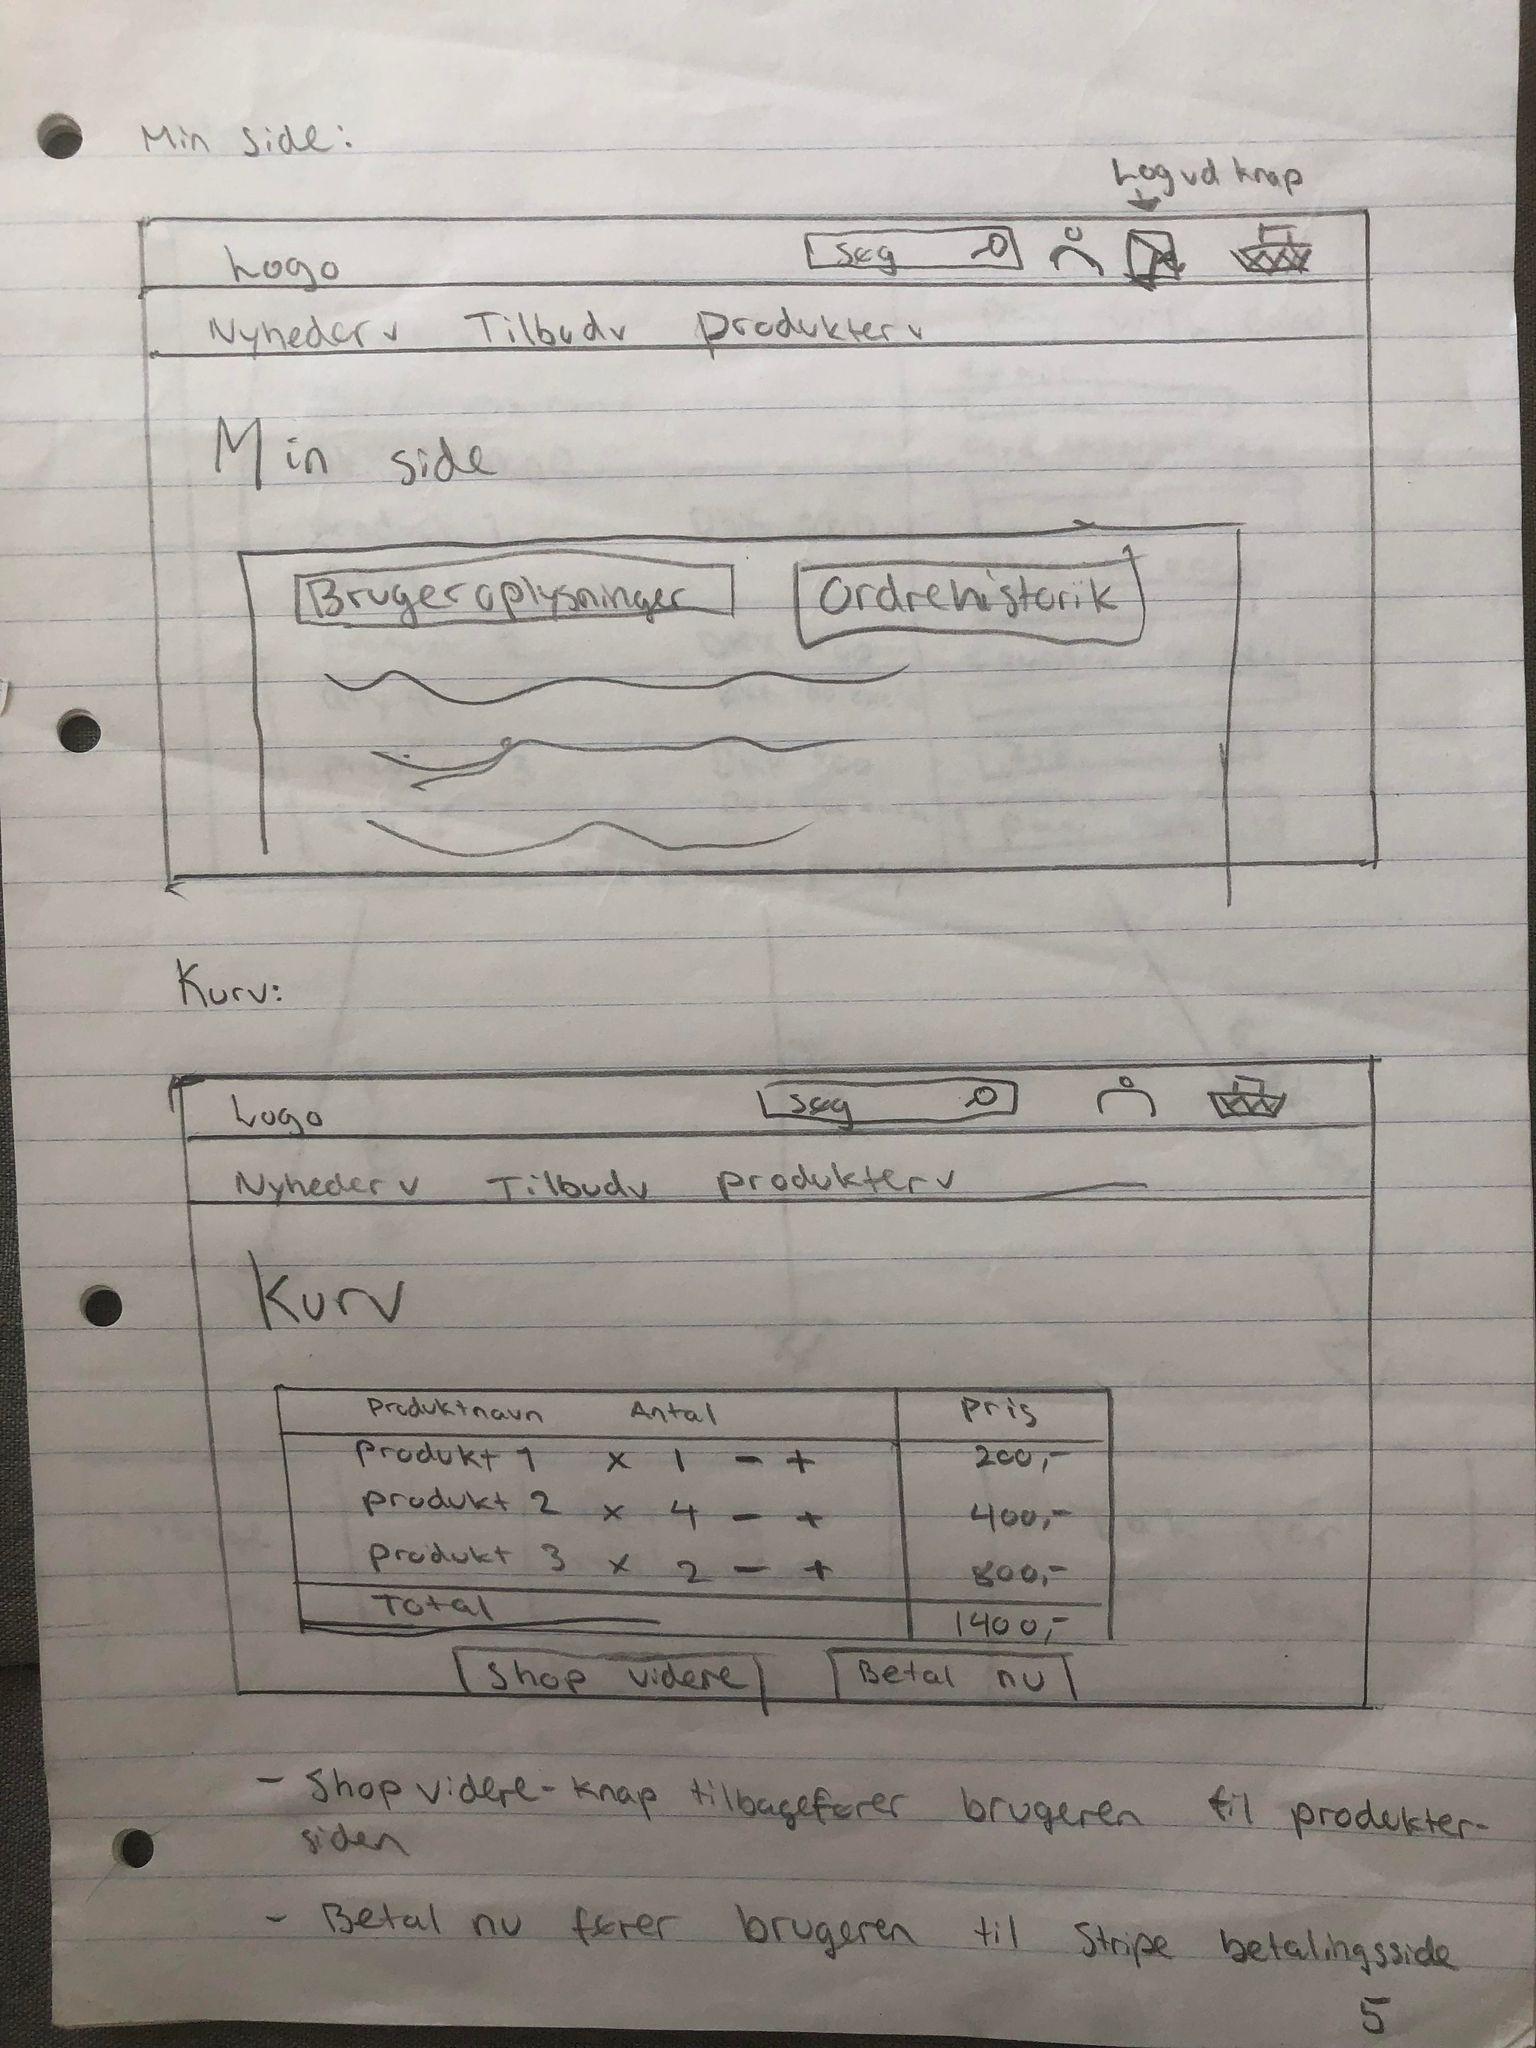 Min side:
Log ud knap
Logo Søg
Nyheder v Tilbud v Produkter v
Min side
Brugeroplysninger Ordrehistorik
Kurv:
Logo Søg
Nyheder v Tilbud v Produkter v
Kurv
Produktnavn Antal Pris
Produkt 1 x 1 - + 200,-
Produkt 2 x 4 - + 400,-
Produkt 3 x 2 - + 800,-
Total 1400,-
Shop videre Betal nu
- Shop videre-knap tilbagefører brugeren til produkter-
siden
- Betal nu fører brugeren til Stripe betalingsside
5